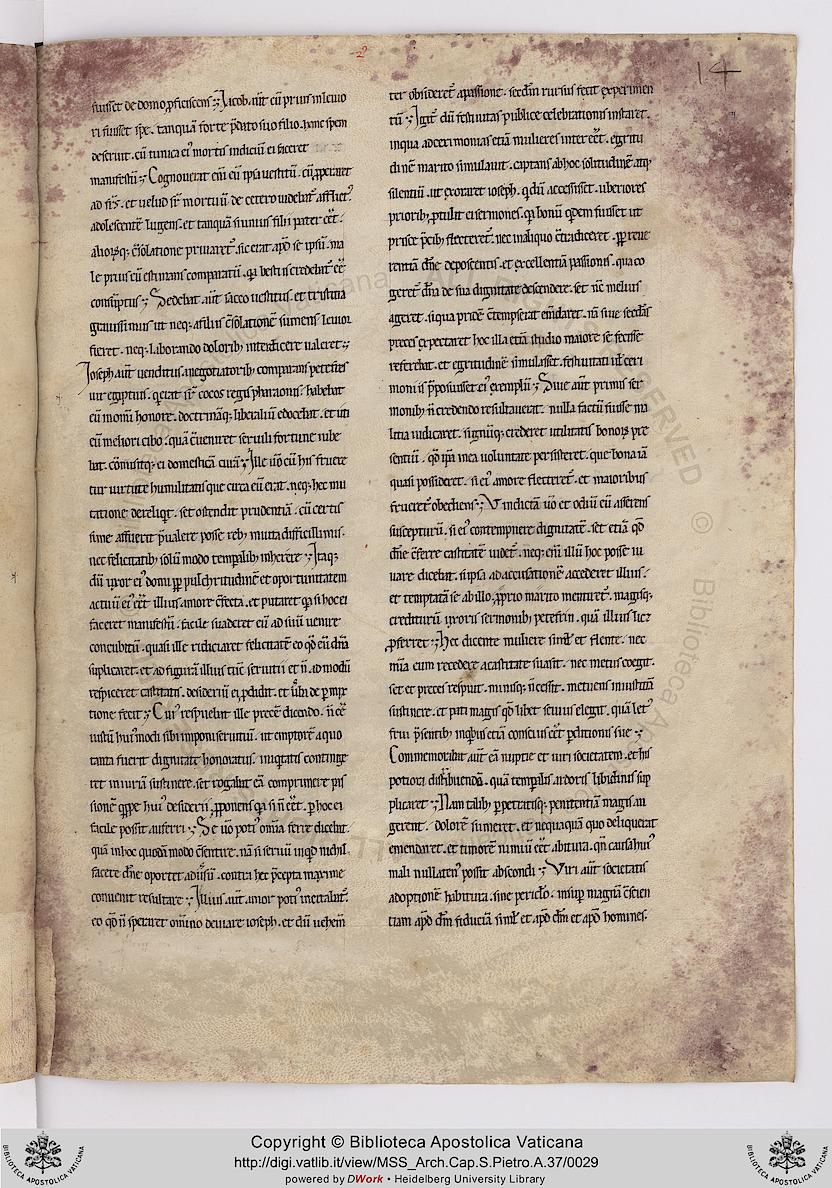 14
fuisset de domo ꝓficiscens ; Iacob aut̄ cū prius in leuio
ri fuisset spe . tanquā forte p̄dato suo filio . hanc spem
deseruit . cū tunica ei᾽ mortis indiciū ei faceret
manifestū ; Cognouerat eni᾽ eū ipsa uestitū . cū ꝓperaret
ad fr̄s . et uelud sr̄ mortuū de cetero
adolescentē lugens . et tanquā si unius filii pater eēt .
c̄solatione priuaret᾽ . sic erat apd̄ se ipsū . ma
le prius eū estimans comparatū . qa bestiis credebat᾽ eē
c̄suptus ; Sedebat aut̄ sacco uestitus . et tristitia
grauissimus ut neq; a filiis c̄solationē sumens leuior
fieret . neq; laborando dolorib; interdicere ualeret ;
Ioseph aut̄ uenditus a negotiatorib; comparans petefres
uir egiptius . qi erat sr̄ cocos regis pharaonis . habebat
eū in omni honore . doctrinaq; liberaliū edocebat . et uti
eū meliori cibo . quā c̄ueniret seruili fortune iube
bat . c̄misitq; ei domesticā curā ; Ille uō cū his fruere
tur uirtute humilitatis que circa eū erat . neq; hec mu
tatione dereliqit . set ostendit prudentiā . cū certis
sime p̄ualere posse reb; in uita difficillimis .
nec felicitatib; solū modo temꝑalib; inherere ; Itaq;
dū uxor ei᾽ domi ꝓp pulchritudinē et oportunitatem
actuū ei᾽ eēt illius amore c̄fecta . et putaret qa si hoc ei
faceret manifestū . facile suaderet eū ad suū uenire
concubitū . quasi ille ridiciaret felicitatē eo qd̄ eū dn̄a
suplicaret . et ad figurā illius tūc seruitii et n̄ ad modū
respiceret castitatis . desideriū ei ꝓdidit . et de ꝑmix
tione fecit ; Cui᾽ respuebat ille precē dicendo . n̄ eē
iustū hui᾽modi sibi imponi seruitiū . ut emptorē a quo
tanta fuerit dignitate honoratus . iniq̄tatis continge
ret iniuriā sustinere . set rogabat eā comprimere pas
sionē hui᾽ desiderii . ꝓponens qa si n̄ eēt . ꝑ hoc ei
facile possit auferri ; Se uō poti᾽ omnia ferre dicebat .
quā in hoc quodā modo c̄sentire . nā si seruū inqd̄ nichil
facere dn̄e oportet aduersū . contra hec p̄cepta maxime
conuenit resultare ; Illius aut̄ amor poti᾽
eo qd̄ n̄ speraret omnino deuiare ioseph . et dū uehem̄
ter obsideret᾽ a passione . secd̄m rursus fecit experimen
tū ; Igit᾽ dū festiuitas publice celebrationis instaret .
in qua ad cerimonias etiā mulieres interēēt . egritu
dinē marito simulauit . captans ab hoc solitudinē atq;
silentiū . ut exoraret ioseph . qi dū accessisset . uberiores
priorib; ꝓtulit ei sermones . qa bonū qdem fuisset ut
prisce p̄cib; flecteret᾽ . nec in aliquo c̄tradiceret . ꝓp reue
rentiā dn̄e deposcentis . et excellentiā passionis . qua co
geret᾽ dn̄a de sua dignitate descendere . set nc̄ melius
ageret . si qua pridē c̄tempserat emdaret . nā siue secd̄as
preces expectaret hoc illa etiā studio maiore se fecisse
referebat . et egritudinē simulasset . festiuitati ul᾽ ceri
moniis p̄posuisset ei᾽ exemplū ; Siue aut̄ primis ser
monib; n̄ credendo resultauerat . nulla factū fuisse ma
litia iudicaret . signūq; crederet utilitatis bonoꝝ pre
sentiū . qd̄ ipa in ea uoluntate persisteret . que bona iā
quasi possideret . si ei᾽ amore flecteret᾽ . et maiorib;
frueret᾽ obediens ; Vindictā uō et odiū eū asserens
suscepturū . si ei᾽ contempnere dignitatē . set etiā qd̄
dn̄e c̄ferre castitatē uidet᾽ . neq; eni᾽ illū hoc posse iu
uare dicebat . si ipsa ad accusationē accederet illius .
et temptatā se ab illo . ꝓprio marito mentiret᾽ . magisq;
crediturū uxoris sermonib; petefrin . quā illius licet
ꝓferret ; Hec dicente muliere simul᾽ et flente . nec
mīa eum recedere a castitate suasit . nec metus coegit .
set et preces respuit . minisq; n̄ cessit . metuens iniustitiā
sustinere . et pati magis qd̄ libet seuius elegit . quā let᾽
frui p̄sentib; in quib᾽ etiā conscius eēt perditionis sue ;
Commemorabat aut̄ eā nuptie et uiri societatem . et his
potiora distribuendā . quā temꝑalis ardoris libidinis sup
plicaret ; Nam talib; ꝑpetratisq; penitentiā magis in
gerent . dolorē sumeret . et nequaquā quo deliquerat
emendaret . et timorē nimiū eēt abitura . qn̄ causa hui᾽
mali nullaten᾽ possit abscondi ; Viri aut̄ societatis
adoptionē habitura . sine periclo . insup magnā c̄scien
tiam apd̄ dm̄ fiduciā simul᾽ et apd̄ dm̄ et apd̄ homines .
BIBLIOTECA APOSTOLICA VATICANA
Copyright © Biblioteca Apostolica Vaticana
http://digi.vatlib.it/view/MSS_Arch.Cap.S.Pietro.A.37/0029
powered by DWork • Heidelberg University Library
BIBLIOTECA APOSTOLICA VATICANA